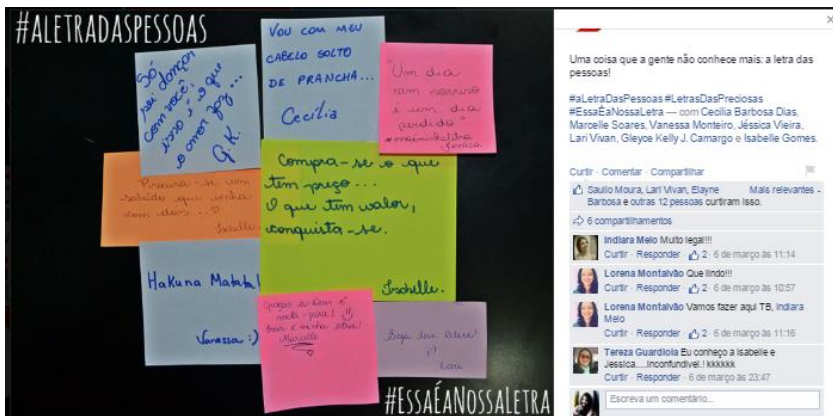 #ALETRADASPESSOAS
Só
sei dançar
com você,
isso é o que
o amor faz...
G.K.
VOU COM MEU
CABELO SOLTO
DE PRANCHA...
Cecília
"Um dia
sem sorriso
é um dia
perdido"
Jéssica
Procura-se um
sábado que venha
com dois...
Isabelle.
Compra-se o que
tem preço...
O que tem valor,
conquista-se.
Isabelle.
Hakuna Matata!
Vanessa :)
Graças a Deus é
sexta-feira!
Essa é minha letra!
Marcelle
Seja leve
;)
Lari
#ESSAÉANOSSALETRA
Uma coisa que a gente não conhece mais: a letra das
pessoas!
#aLetraDasPessoas #LetrasDasPreciosas
#EssaÉaNossaLetra — com Cecilia Barbosa Dias,
Marcelle Soares, Vanessa Monteiro, Jéssica Vieira,
Lari Vivan, Gleyce Kelly J. Camargo e Isabelle Gomes.
Curtir · Comentar · Compartilhar
Saulio Moura, Lari Vivan, Elayne
Barbosa e outras 12 pessoas curtiram isso.
Mais relevantes
6 compartilhamentos
Indiara Melo Muito legal!!!
Curtir · Responder · 2 · 6 de março às 11:14
Lorena Montalvão Que lindo!!!
Curtir · Responder · 2 · 6 de março às 10:57
Lorena Montalvão Vamos fazer aqui TB, Indiara
Melo
Curtir · Responder · 2 · 6 de março às 11:16
Tereza Guardiola Eu conheço a Isabelle e
Jessica.....Inconfundivel.! kkkkkk
Curtir · Responder · 6 de março às 23:47
Escreva um comentário...